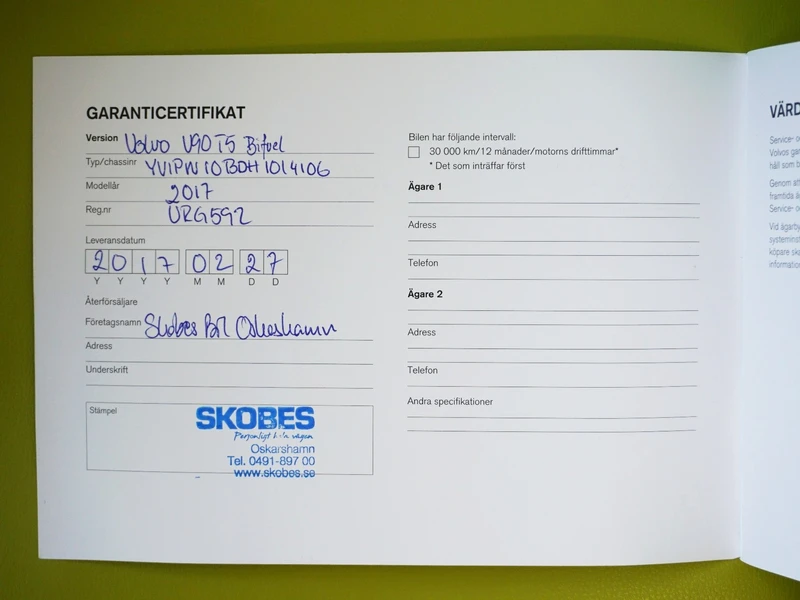 GARANTICERTIFIKAT
Version Volvo V90 T5 Bifuel
Typ/chassinr YV1PW10BDH1014106
Modellår 2017
Reg.nr URG592
Leveransdatum
2017 02 27
Y Y Y Y M M D D
Återförsäljare
Företagsnamn Skobes Bil Oskarshamn
Adress
Underskrift
Stämpel
SKOBES
Personligt hela vägen
Oskarshamn
Tel. 0491-897 00
www.skobes.se
Bilen har följande intervall:
30 000 km/12 månader/motorns drifttimmar*
* Det som inträffar först
Ägare 1
Adress
Telefon
Ägare 2
Adress
Telefon
Andra specifikationer
VÄRD
Service- o
Volvos gar
håll som b
Genom att
framtida ä
Service- o
Vid ägarby
systeminst
köpare ska
information